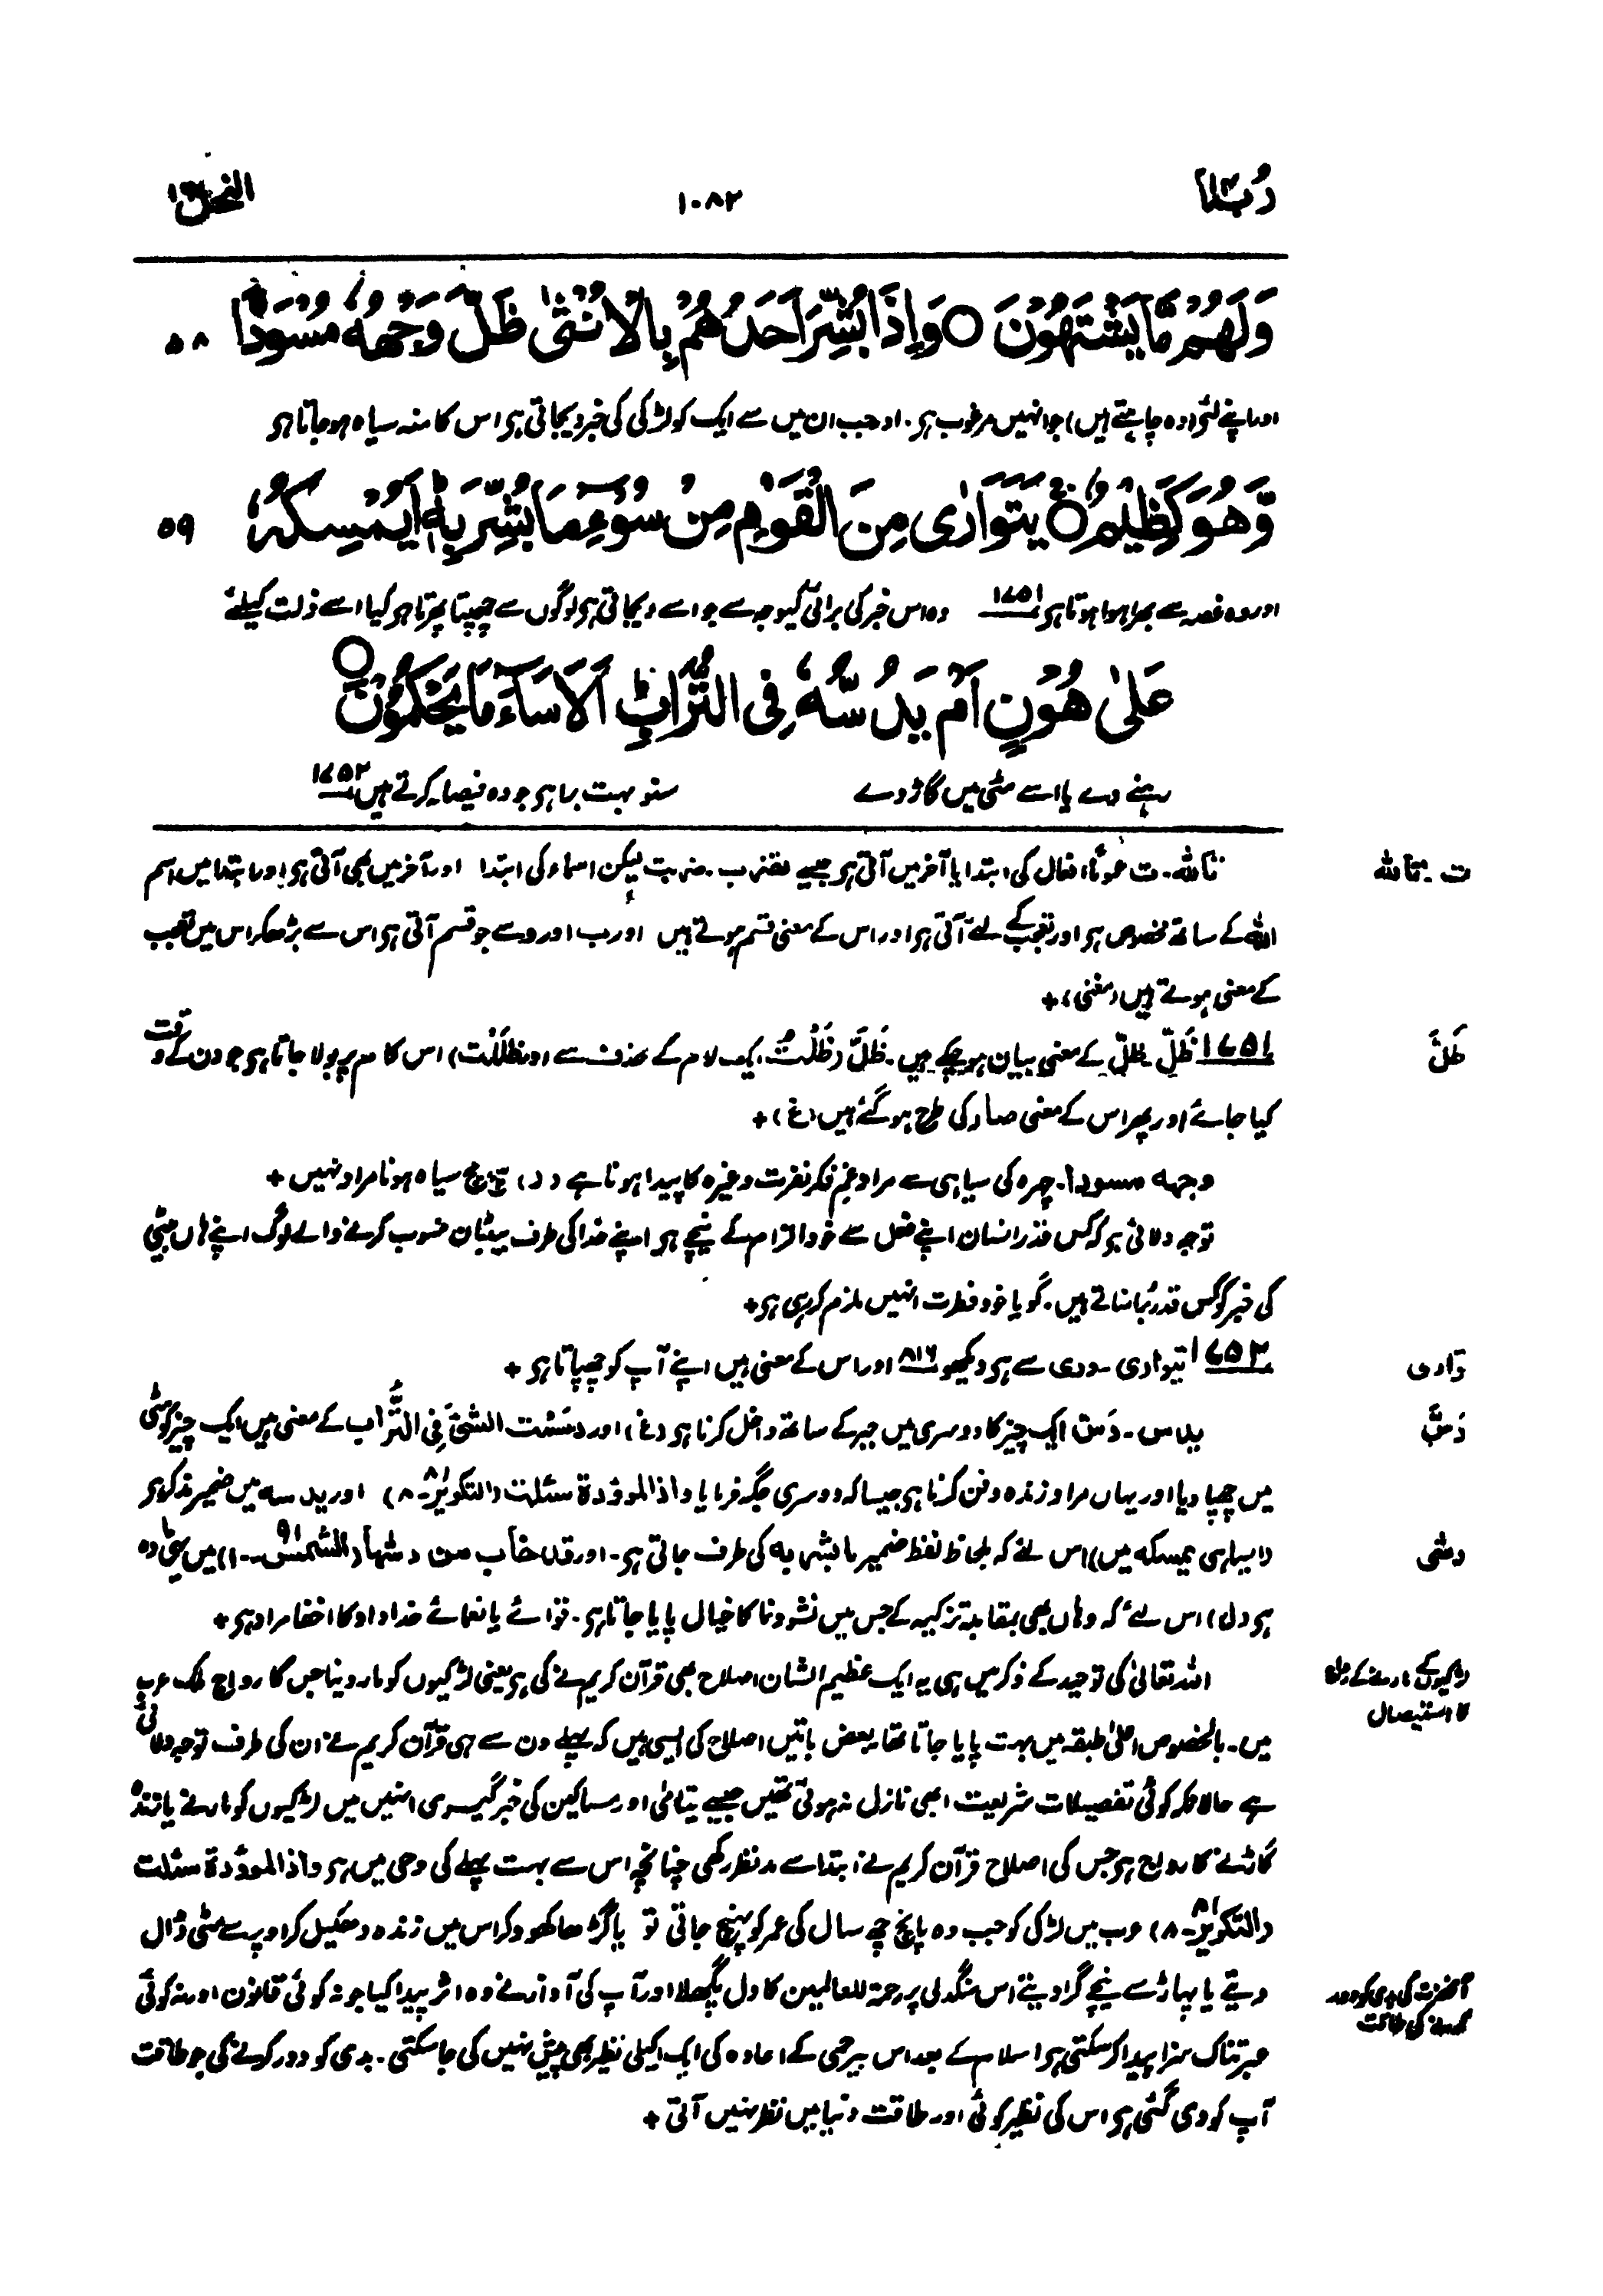 رُبَمَا
۱۰۸۲
النحل ۱۶
وَلَهُمْ مَّا یَشْتَهُوْنَ ○ وَاِذَا بُشِّرَ اَحَدُهُمْ بِالْاُنْثٰی ظَلَّ وَجْهُهٗ مُسْوَدًّا ۵۸
اور اپنے لئے (وہ چاہتے ہیں) جو انہیں مرغوب ہو۔ اور جب ان میں سے ایک کو لڑکی کی خبر دیجاتی ہو اس کا منہ سیاہ ہو جاتا ہو
وَّهُوَ كَظِیْمٌ ○ یَتَوَارٰی مِنَ الْقَوْمِ مِنْ سُوْٓءِ مَا بُشِّرَ بِهٖ اَیُمْسِكُهٗ ۵۹
اور وہ غصہ سے بھرا ہوا ہوتا ہو ۱۷۵۱ وہ اس خبر کی برائی کیوجہ سے جو اسے دیجاتی ہو لوگوں سے چھپتا پھرتا ہو کیا اسے ذلت کیلئے
عَلٰی هُوْنٍ اَمْ یَدُسُّهٗ فِی التُّرَابِ اَلَا سَآءَ مَا یَحْكُمُوْنَ ○
رہنے دے یا اسے مٹی میں گاڑ دے سنو بہت برا ہو جو وہ فیصلہ کرتے ہیں ۱۷۵۲
ت۔ تاللہ
تاللہ۔ ت عموماً افعال کی ابتدا یا آخر میں آتی ہو جیسے تضرب۔ ضربت لیکن اسماء کی ابتدا اور آخر میں بھی آتی ہو اور ابتدا میں اسم
اللہ کے ساتھ مخصوص ہو اور تعجب کے لئے آتی ہو اور اس کے معنی قسم ہوتے ہیں اور ب اور و سے جو قسم آتی ہو اس سے بڑھکر اس میں تعجب
کے معنی ہوتے ہیں (مغنی) +
ظَلَّ
۱۷۵۱ ظَلّ۔ ظلّ کے معنی بیان ہو چکے ہیں۔ ظَلَّ (ظَلْتُ ایک لام کے حذف سے اور ظللت) اس کام پر بولا جاتا ہو جو دن کے وقت
کیا جائے اور پھر اس کے معنی صار کی طرح ہو گئے ہیں (غ) +
وجهه مسودا۔ چہرہ کی سیاہی سے مراد غم فکر نفرت وغیرہ کا پیدا ہونا ہے (ر) سچ مچ سیاہ ہونا مراد نہیں +
توجہ دلائی ہو کہ کس قدر انسان اپنے فعل سے خود الزام کے نیچے ہو اپنے خدا کی طرف بیٹیاں منسوب کرنے والے لوگ اپنے ہاں بیٹی
کی خبر کو کس قدر بُرا مناتے ہیں۔ گویا خود فطرت انہیں ملزم کر رہی ہو +
تواری
۱۷۵۲ یتواری۔ وری سے ہو دیکھو ۸۱۶ اور اس کے معنی ہیں اپنے آپ کو چھپاتا ہو +
دَسَّ
یدس۔ دَسّ ایک چیز کا دوسری میں جبر کے ساتھ داخل کرنا ہو (غ) اور دسَسْت الشیَٔ فِی التُّراب کے معنی ہیں ایک چیز کو مٹی
میں چھپا دیا اور یہاں مراد زندہ دفن کرنا ہو جیسا کہ دوسری جگہ فرمایا واذا الموؤدة سئلت (التکویر ۸۱۔۸) اور یدسه میں ضمیر مذکر ہو
دسّی
(ایسا ہی یمسکه میں) اس لئے کہ بلحاظ لفظ ضمیر ما بشر به کی طرف جاتی ہو۔ اور قد خاب من دسّٰها (الشمس ۹۱۔۱۰) میں بھی وہ
ہو (ل) اس لئے کہ وہاں بھی بمقابلہ تزکیہ کے جس میں نشوونما کا خیال پایا جاتا ہو۔ قوائے یا نعمائے خداداد کا اخفا مراد ہو +
لڑکیوں کے مارنے کے رواج
کا استیصال
اللہ تعالیٰ کی توحید کے ذکر میں ہی یہ ایک عظیم الشان اصلاح بھی قرآن کریم نے کی ہو یعنی لڑکیوں کو مار دینا جس کا رواج ملک عرب
میں۔ بالخصوص اعلیٰ طبقہ میں بہت پایا جاتا تھا۔ بعض باتیں اصلاح کی ایسی ہیں کہ پہلے دن سے ہی قرآن کریم نے ان کی طرف توجہ دلائی
ہے حالانکہ کوئی تفصیلات شریعت ابھی نازل نہ ہوئی تھیں جیسے یتامٰی اور مساکین کی خبر گیری انہیں میں لڑکیوں کو مارنے یا زندہ
گاڑنے کا رواج ہو جس کی اصلاح قرآن کریم نے ابتدا سے مدنظر رکھی چنانچہ اس سے بہت پہلے کی وحی میں ہو واذا الموؤدة سئلت
(التکویر ۸۱۔۸) عرب میں لڑکی کو جب وہ پانچ چھ سال کی عمر کو پہنچ جاتی تو یا گڑھا کھود کر اس میں زندہ دھکیل کر اوپر سے مٹی ڈال
آنحضرت کی بدی کو دور
کرنے کی طاقت
دیتے یا پہاڑ سے نیچے گرا دیتے اس سنگدلی پر رحمۃ للعالمین کا دل پگھلا اور آپ کی آواز نے وہ اثر پیدا کیا جو نہ کوئی قانون اور نہ کوئی
عبرتناک سزا پیدا کر سکتی ہو اسلام کے بعد اس بیرحمی کے اعادہ کی ایک اکیلی نظیر بھی پیش نہیں کی جا سکتی۔ بدی کو دور کرنے کی جو طاقت
آپ کو دی گئی ہو اس کی نظیر کوئی اور طاقت دنیا میں نظر نہیں آتی +